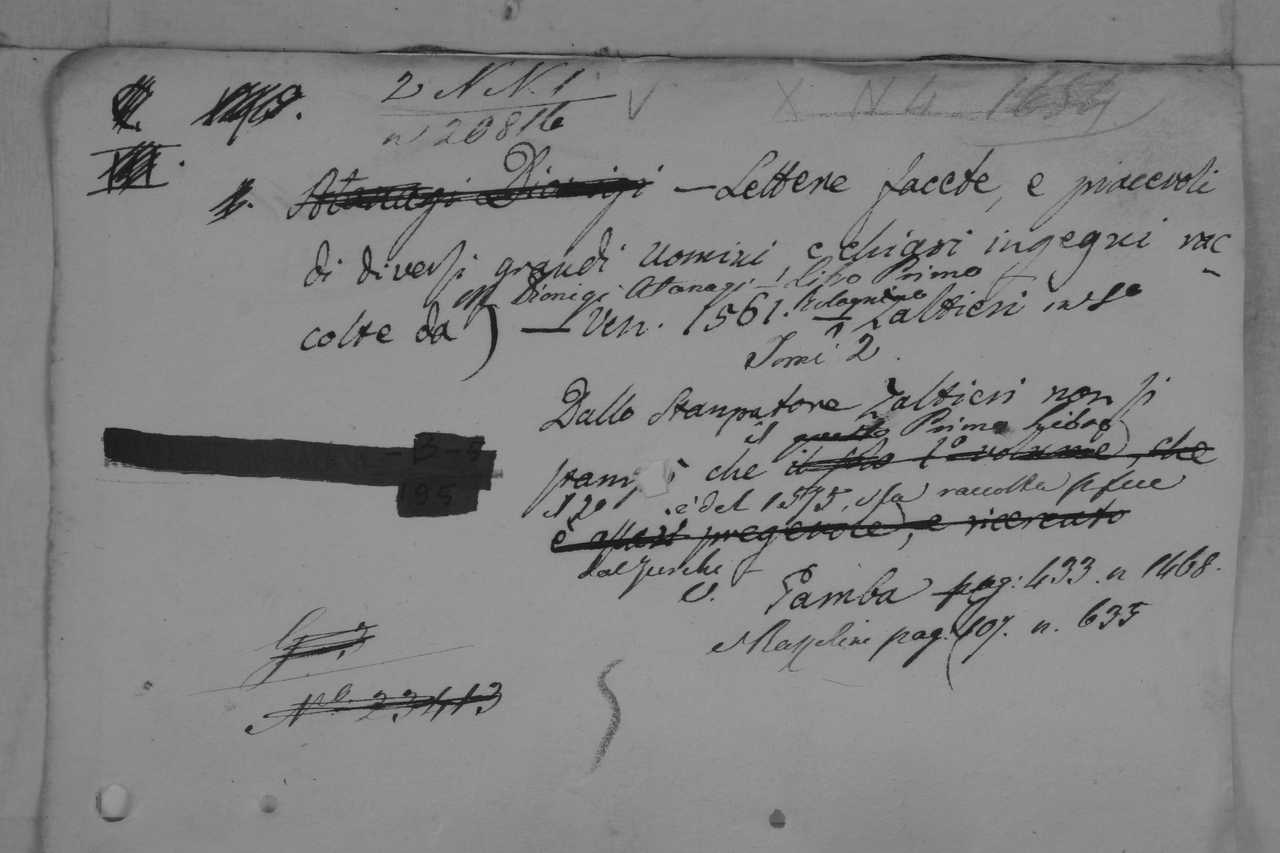 2 N N. 1 V X N 4 1654
n° 20816
Atanagi Dionigi — Lettere facete, e piacevoli
di diversi grandi uomini e chiari ingegni rac-
Dionigi Atanagi — Libro Primo
colte da) — Ven. 1561. Bolognino Zaltieri in 8°
Tomi 2.
Dallo Stampatore Zaltieri non si
il questo Primo Libro
stampò che il solo 1° volume, che
è del 1575, e fu raccolta
è assai pregevole, e ricercato
dal Turchi
V. Gamba pag: 433. n 1468.
pag. 107. n. 635
B-5
195
G. 3
N°. 23413